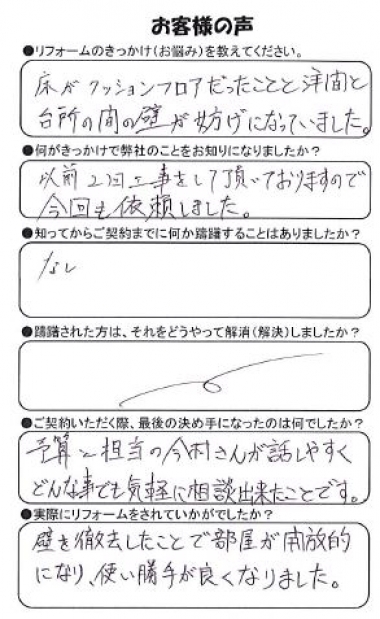 お客様の声
●リフォームのきっかけ(お悩み)を教えてください。
床がクッションフロアだったことと洋間と
台所の間の壁が妨げになっていました。
●何がきっかけで弊社のことをお知りになりましたか？
以前2回工事をして頂いておりますので
今回も依頼しました。
●知ってからご契約までに何か躊躇することはありましたか？
なし
●躊躇された方は、それをどうやって解消(解決)しましたか？
●ご契約いただく際、最後の決め手になったのは何でしたか？
予算と担当の今村さんが話しやすく
どんな事でも気軽に相談出来たことです。
●実際にリフォームをされていかがでしたか？
壁を撤去したことで部屋が開放的
になり、使い勝手が良くなりました。